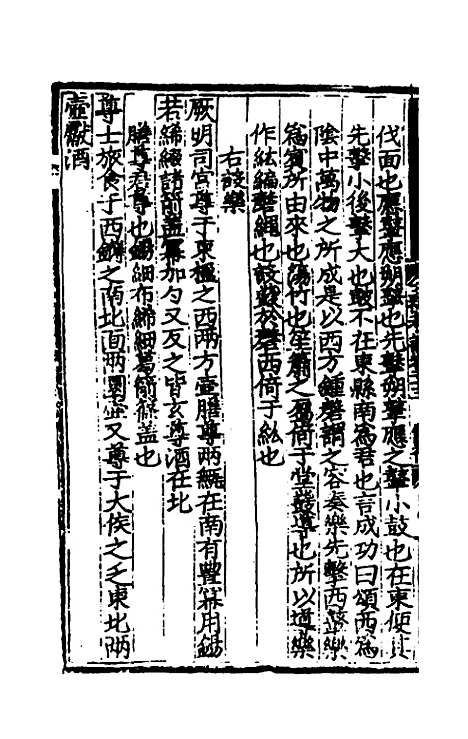 伐面也應鼙應朔鼙也先擊朔鼙應之鼙小鼓也在東便其
先擊小後擊大也鼓不在東縣南為君也言成功曰頌西為
陰中萬物之所成是以西方鍾磬謂之容奏樂先擊西鼙樂
為賓所由來也簜竹也笙簫之屬倚于堂鼗導也所以道樂
作紘編磬繩也設鼗於磬西倚于紘也
右設樂
厥明司宮尊于東楹之西兩方壺膳尊兩甒在南有豐冪用錫
若絺綴諸箭蓋冪加勺又反之皆玄尊酒在北
膳尊君尊也錫細布絺細葛箭篠蓋也
尊士旅食于西鑮之南北面兩圜壺又尊于大侯之乏東北兩
壺獻酒